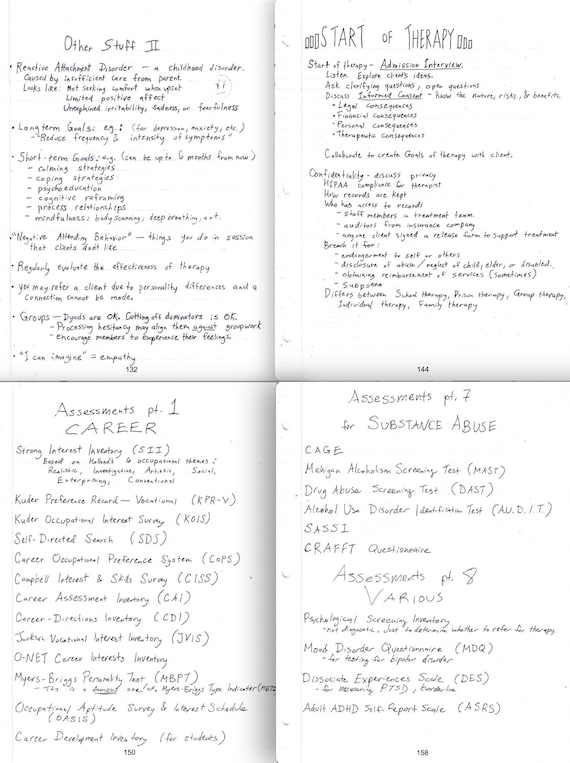 Other Stuff II
• Reactive Attachment Disorder — a childhood disorder.
Caused by insufficient care from parent.
Looks like: Not seeking comfort when upset
Limited positive affect
Unexplained irritability, sadness, or fearfulness
• Long term Goals: e.g.: (for depression, anxiety, etc.)
- "Reduce frequency & intensity of symptoms"
• Short-term Goals: e.g. (can be up to 6 months from now)
- calming strategies
- coping strategies
- psychoeducation
- cognitive reframing
- process relationships
- mindfulness: body scanning, deep breathing, art.
• "Negative Attending Behavior" — things you do in session
that clients don't like
• Regularly evaluate the effectiveness of therapy
• you may refer a client due to personality differences and a
connection cannot be made.
• Groups — Dyads are OK. Cutting off dominators is OK.
- Processing hesitancy may align them against groupwork
- encourage members to experience their feelings.
• "I can imagine" = empathy
132
START OF THERAPY
Start of therapy - Admission Interview.
Listen Explore client's ideas.
Ask clarifying questions, open questions
Discuss Informed Consent - know the nature, risks, & benefits.
• Legal consequences
• Financial consequences
• Personal consequences
• Therapeutic consequences
Collaborate to create Goals of therapy with client.
Confidentiality - discuss privacy
HIPAA compliance for therapist
How records are kept
Who has access to records
- staff members in treatment team.
- auditors from insurance company
- anyone client signed a release form to support treatment
Breach it for:
- endangerment to self or others
- disclosure of abuse/neglect of child, elder, or disabled.
- obtaining reimbursement of services (sometimes)
- Subpoena
Differs between School therapy, Prison therapy, Group therapy,
Individual therapy, Family therapy
144
Assessments pt. 1
CAREER
Strong Interest Inventory (SII)
Based on Holland's 6 occupational themes:
Realistic, Investigative, Artistic, Social,
Enterprising, Conventional
Kuder Preference Record — Vocational (KPR-V)
Kuder Occupational Interest Survey (KOIS)
Self-Directed Search (SDS)
Career Occupational Preference System (COPS)
Campbell Interest & Skills Survey (CISS)
Career Assessment Inventory (CAI)
Career-Directions Inventory (CDI)
Jackson Vocational Interest Inventory (JVIS)
O-NET Career Interests Inventory
Myers-Briggs Personality Test (MBPT)
- This is a famous one/aka Myers-Briggs Type Indicator (MBTI)
Occupational Aptitude Survey & Interest Schedule
(OASIS)
Career Development Inventory (for students)
150
Assessments pt. 7
for SUBSTANCE ABUSE
CAGE
Michigan Alcoholism Screening Test (MAST)
Drug Abuse Screening Test (DAST)
Alcohol Use Disorder Identification Test (A.U.D.I.T.)
SASSI
CRAFFT Questionnaire
Assessments pt. 8
VARIOUS
Psychological Screening Inventory
- not diagnostic, just to determine whether to refer for therapy.
Mood Disorder Questionnaire (MDQ)
- for testing for bipolar disorder
Dissociate Experiences Scale (DES)
- for measuring PTSD, borderline
Adult ADHD Self-Report Scale (ASRS)
158